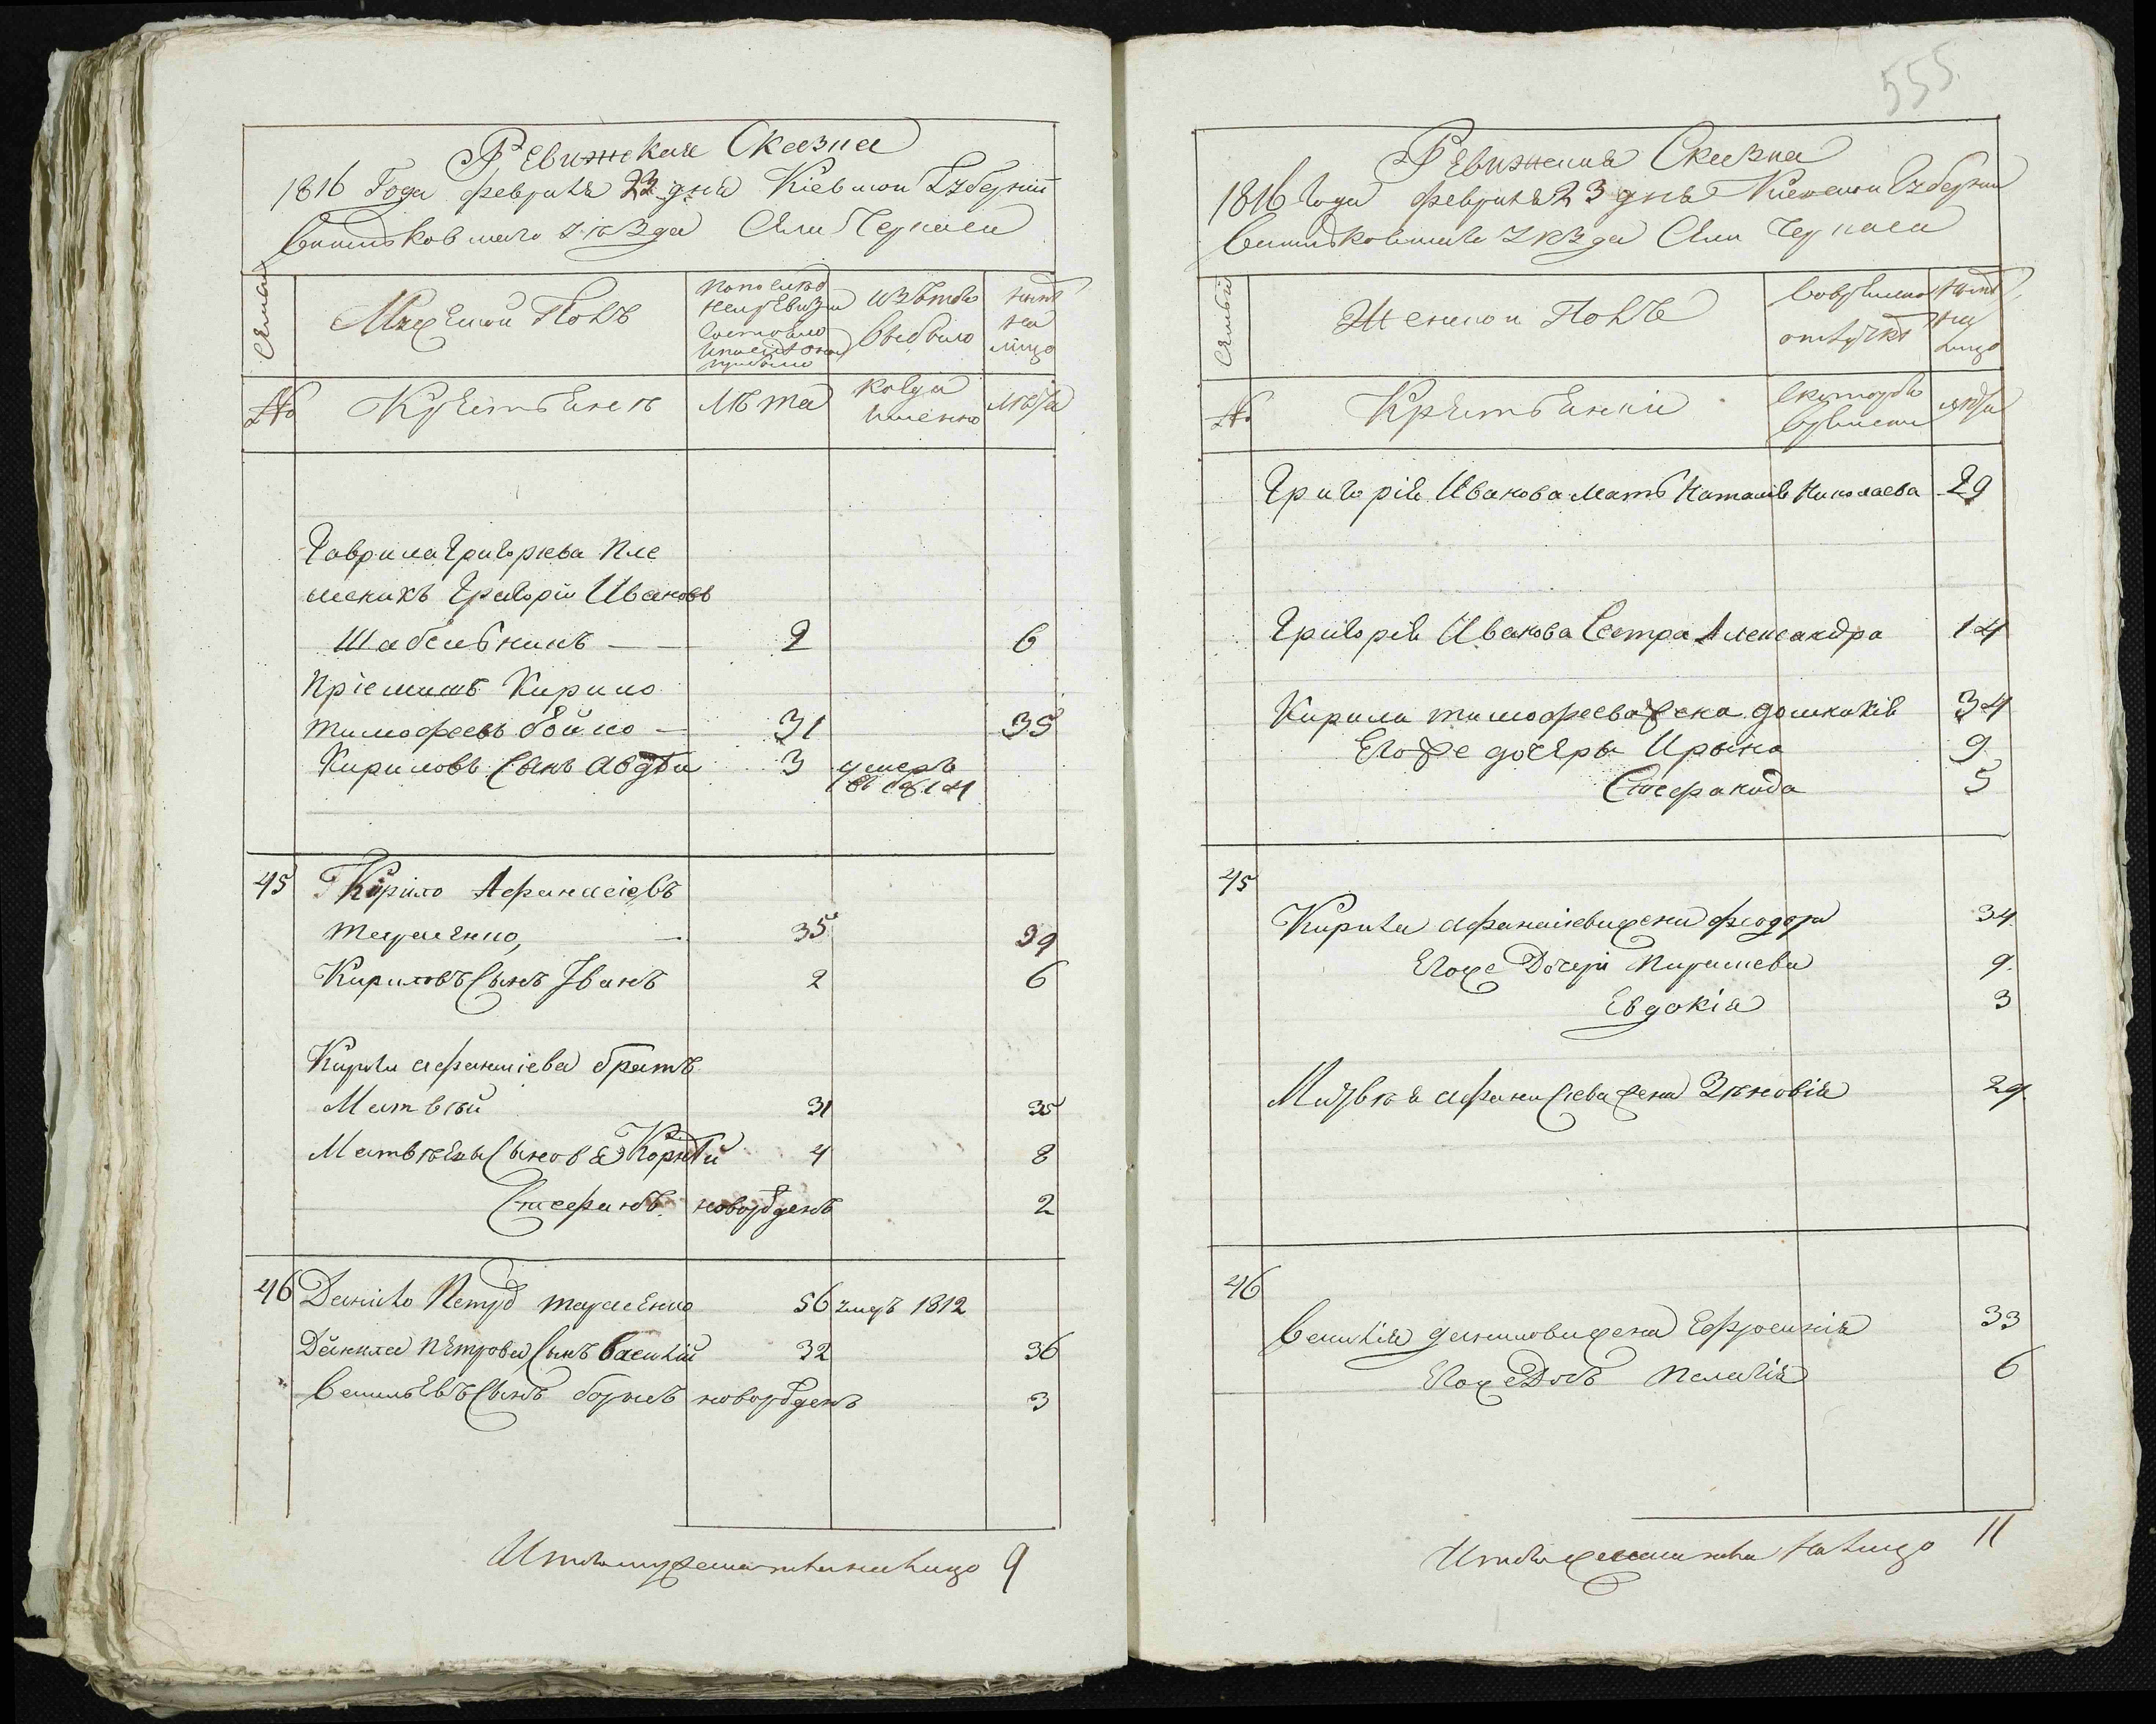 Ревижская Сказка
1816 Года февраля 23 дня Кіевской Губерніи
Васильковскаго уезда Села Черкаса
Семьи
Мужеской Полъ
По последней ревизіи состояло и после оной прибыло
Изътого выбыло
ныне на лицо
№
Крестьянехъ
Лета
Когда именно
Лета
Гаврила Григорьева Пле
меникъ Григорій Ивановъ
Шабельникъ — 2 6
Пріемышъ Кирило
тимофеевъ бойко — 31 35
Кириловъ Сынъ Авдей 3 умеръ
въ 1814
45 Кирило Афанасіевъ
тарасенко, — 35 39
Кириловъ Сынъ Іванъ 2 6
Кирила афанасіева братъ
Матвей 31 35
Матвеевы Сыновя Корней 4 8
Стефанъ новорожденъ 2
46 Данило Петровъ тарасенко 56 умеръ 1812
Данила Петрова Сынъ Василій 32 36
Васильевъ Сынъ борисъ новорожденъ 3
Итого мужеска пола на лицо 9
555
Ревижская Сказка
1816 Года февраля 23 дня Кіевской Губерніи
Васильковскаго уезда Села Черкаса
Семьи
Женской Полъ
Вовременной отлучке
Ныне на лицо
№
Крестьянки
Скотораго времени
лета
Григорія Иванова Мать Наталія Николаева 29
Григорія Иванова Сестра Александра 14
Кирила тимофеева жена домникія 34
Егоже дочеры Ирына 9
Стефанида 5
45
Кирила афанасіева жена феодора 34
Егоже Дочери Параскева 9
Евдокія 3
Матвея афанасіева жена Зеновія 29
46
Василія данилова жена Ефросинія 33
Егоже Дочь Пелагія 6
Итого женска пола на лицо 11